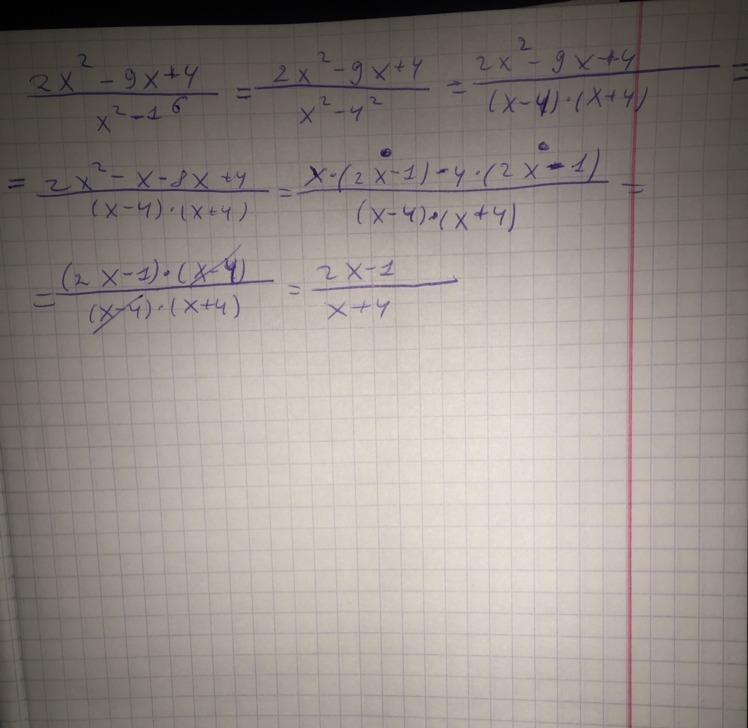 (2x² - 9x + 4)/(x² - 16) = (2x² - 9x + 4)/(x² - 4²) = (2x² - 9x + 4)/((x - 4) · (x + 4)) =
= (2x² - x - 8x + 4)/((x - 4) · (x + 4)) = (x · (2x - 1) - 4 · (2x - 1))/((x - 4) · (x + 4)) =
= ((2x - 1) · (x - 4))/((x - 4) · (x + 4)) = (2x - 1)/(x + 4)